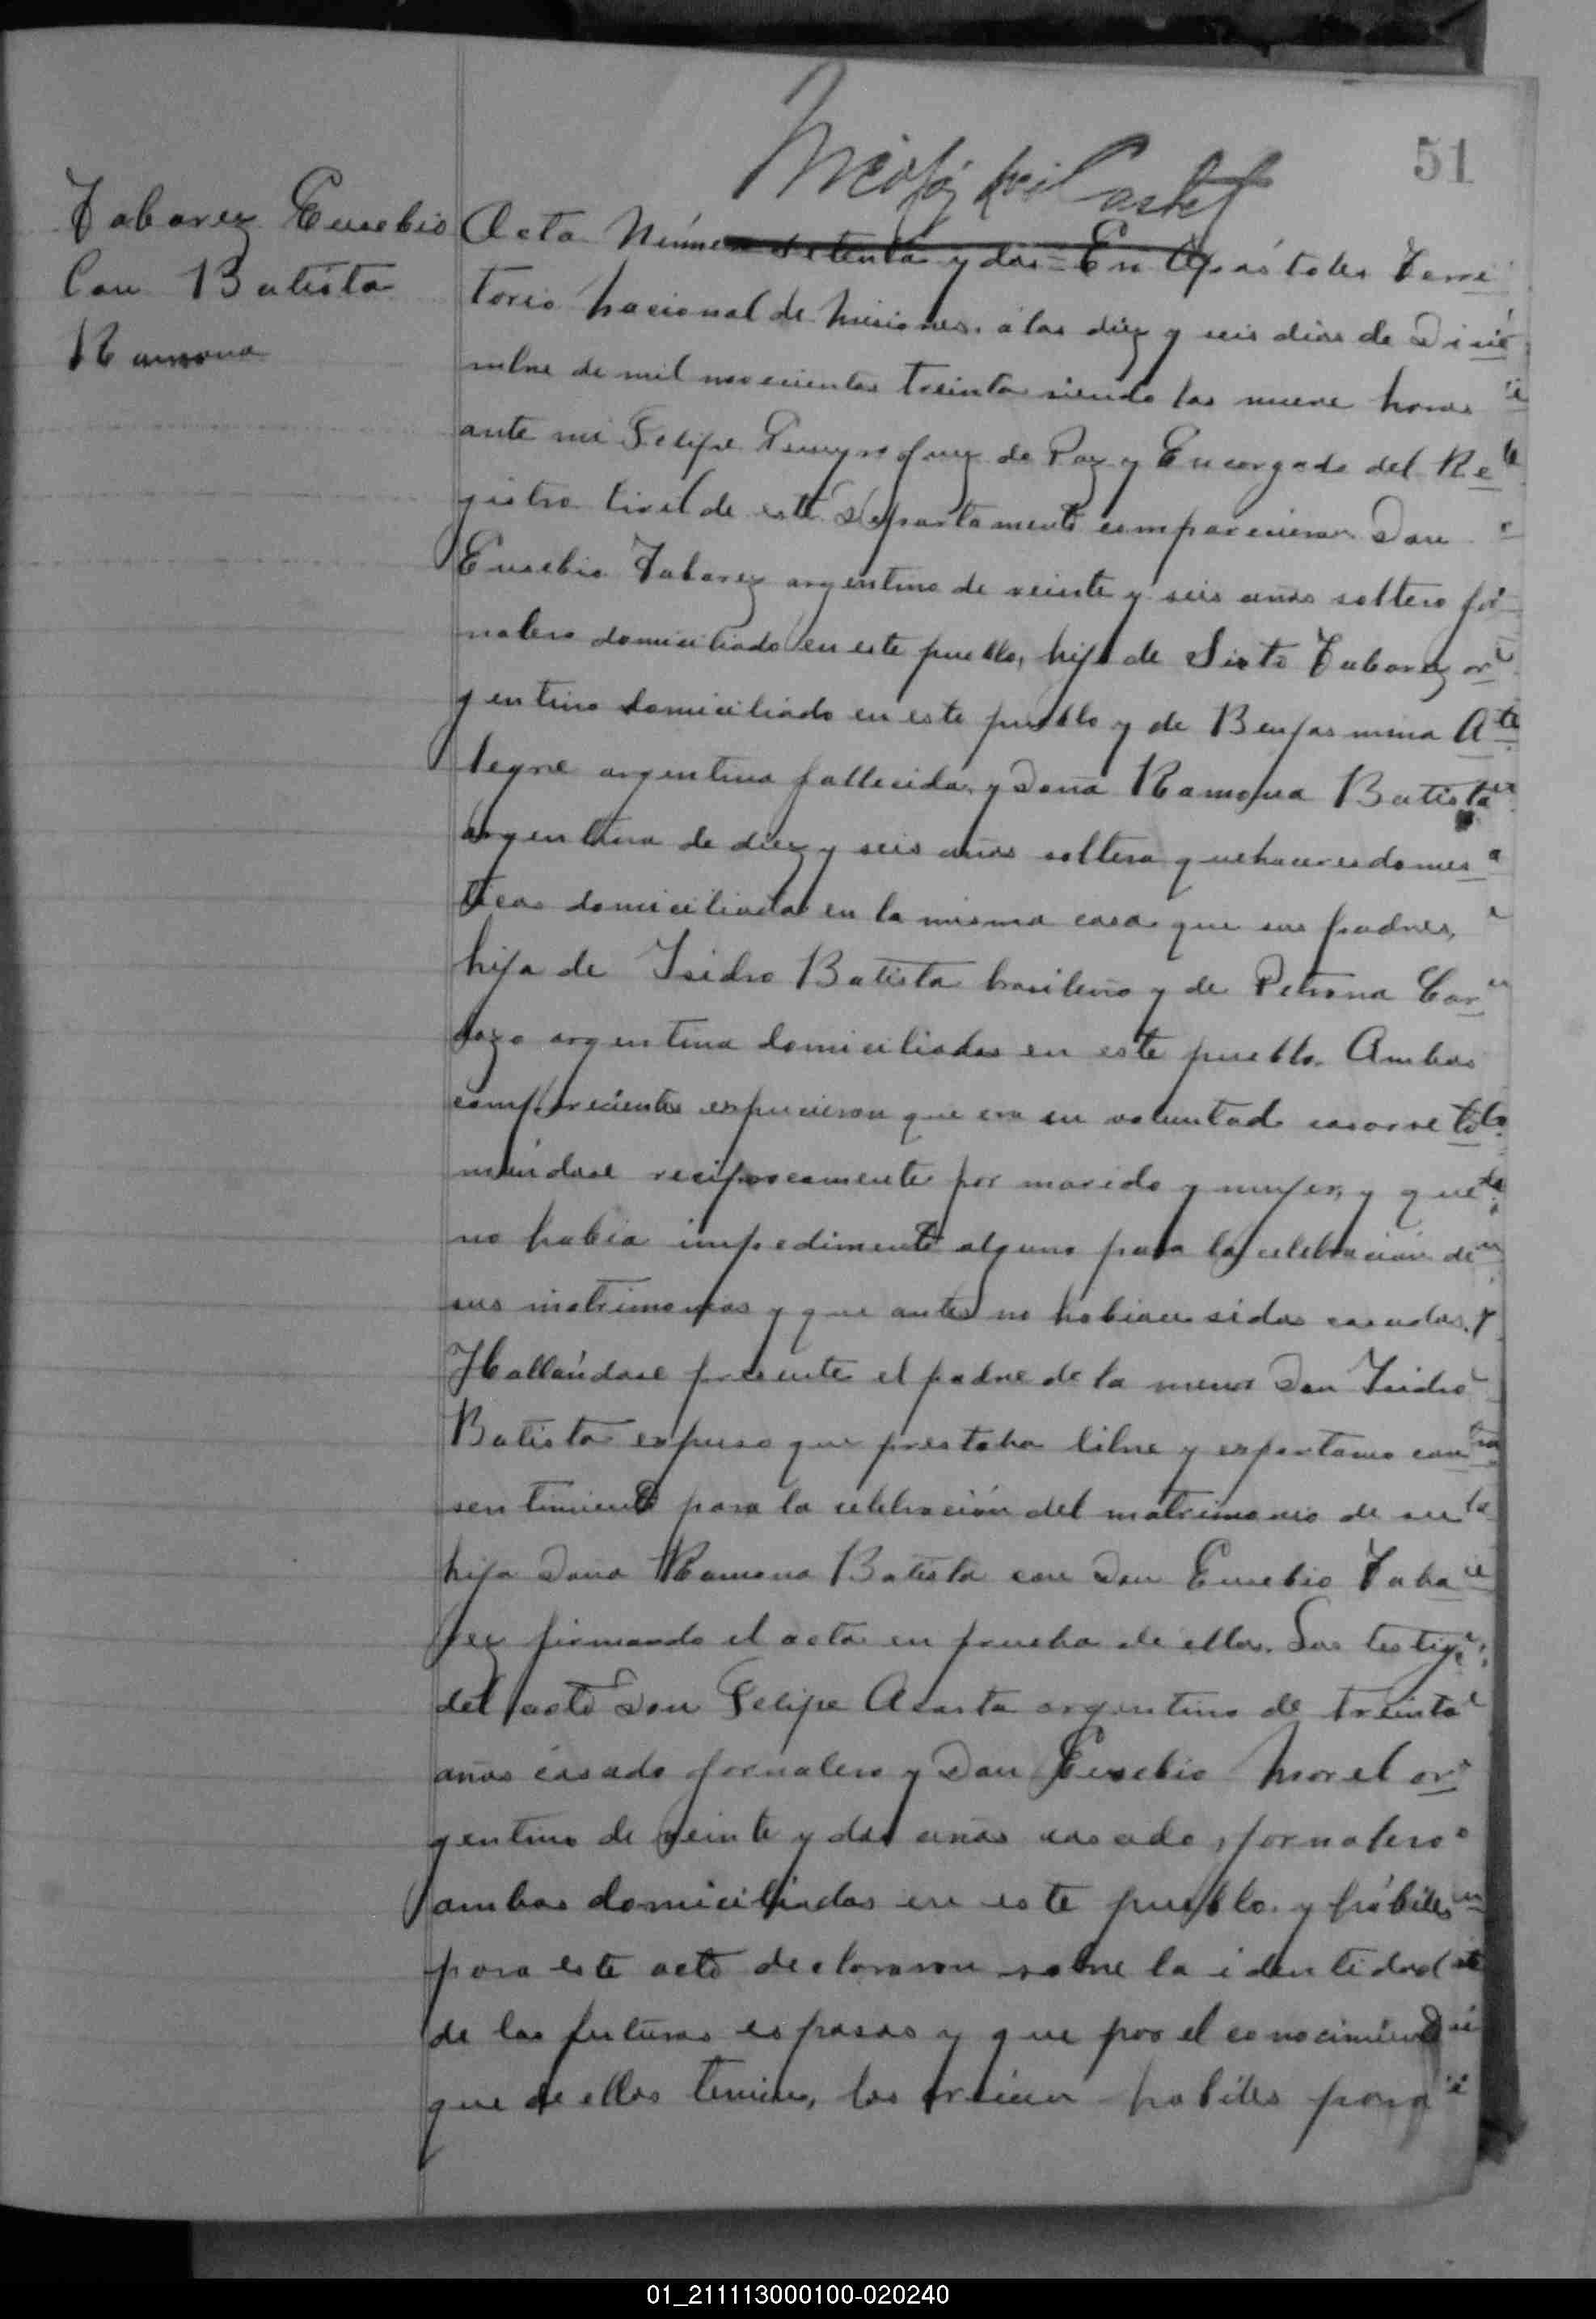 51
Tabarez Eusebio
Con Batista
Ramona
Acta Número setenta y dos = En Apóstoles Terri
torio Nacional de Misiones, á los diez y seis dias de Dicie
mbre de mil novecientos treinta siendo las nueve horas
ante mi Felipe Juez de Paz y Encargado del Re
gistro Civil de este Departamento comparecieron Don
Eusebio Tabarez argentino de veinte y seis años soltero jor
nalero domiciliado en este pueblo, hijo de Sisto Tabarez ar
gentino domiciliado en este pueblo y de Benjamina A
legre argentina fallecida, y Doña Ramona Batista
argentina de diez y seis años soltera quehaceres domes
ticos domiciliada en la misma casa que sus padres,
hija de Isidro Batista brasileño y de Petrona Car
dozo argentina domiciliados en este pueblo. Ambos
comparecientes expusieron que era su voluntad casarse to
mándose reciprocamente por marido y mujer, y que
no había impedimento alguno para la celebración de
sus matrimonios y que antes no habian sidos casados, y
Hallándose presente el padre de la menor Don Isidro
Batista expuso que prestaba libre y espontaneo con
sentimiento para la celebración del matrimonio de su
hija Doña Ramona Batista con Don Eusebio Taba
rez firmando el acta en prueba de ello. Los testigos
del acto Don Felipe Acosta argentino de treinta
años casado jornalero y Don Eusebio Morel ar
gentino de veinte y dos años casado, jornalero
ambos domiciliados en este pueblo y hábiles
para este acto declararon sobre la identidad
de los futuros esposos y que por el conocimiento
que de ellos tenian, los creian habiles para
01_211113000100-020240